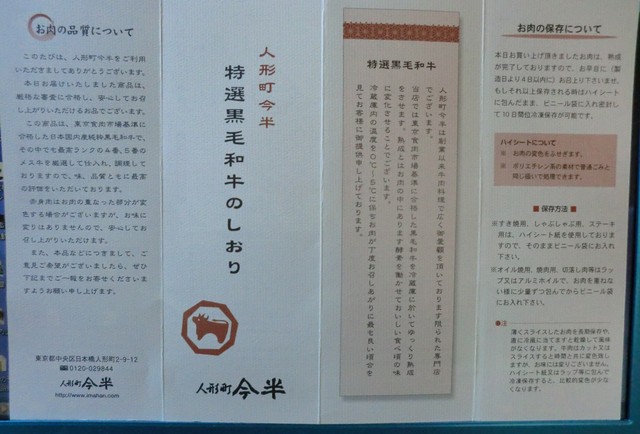 お肉の品質について
このたびは、人形町今半をご利用
いただきましてありがとうございます。
本日お届けいたしました商品は、
厳格な審査に合格し、安心してお召
し上がりいただけるお品でございます。
この商品は、東京食肉市場基準に
合格した日本国内産純粋黒毛和牛で、
その中で七最高ランクのA4番、5番の
メス牛を厳選して仕入れ、調理して
おりますので、味、品質ともに最高
の評価をいただいております。
赤身肉はお肉の重なった部分が変
色する場合がございますが、お味に
変りはありませんので、安心してお
召し上がりいただけます。
また、本品などにつきまして、ご
意見ご希望がございましたら、ぜひ
下記までご一報をお寄せくださいま
すようお願い申し上げます。
東京都中央区日本橋人形町2-9-12
0120-029844
人形町今半
http://www.imahan.com
人形町今半
特選黒毛和牛のしおり
人形町今半
特選黒毛和牛
人形町今半は創業以来牛肉料理で広く御愛顧を頂いております限られた専門店
でございます。
当店では東京食肉市場基準に合格した黒毛和牛を冷蔵庫に於いてゆっくり熟成
をさせます。熟成とはお肉の中にあります酵素を働かせておいしい食べ頃の味
に変化させることでございます。
冷蔵庫内の温度を0℃〜5℃に保ちお肉が丁度お召しあがりに最も良い頃合を
見てお客様に御提供申し上げております。
お肉の保存について
本日お買い上げ頂きましたお肉は、熟成
が完了しておりますので、お早目に(製
造日より4日以内に)お召上り下さいませ。
もしそれ以上保存される時はハイシート
に包んだまま、ビニール袋に入れ密封し
て10日間位冷凍保存が可能です。
ハイシートについて
※ お肉の変色をふせぎます。
※ ポリエチレン系の素材で普通ごみと
同じ扱いで処理できます。
■保存方法■
※すき焼用、しゃぶしゃぶ用、ステーキ
用は、ハイシート紙を使用しております
ので、そのままビニール袋にお入れ
下さい。
※オイル焼用、焼肉用、切落し肉等はラッ
プ又はアルミホイルで、お肉を重ねな
い様に少量ずつ包んでからビニール袋
にお入れ下さい。
●注
薄くスライスしたお肉を長期保存や、
直に冷風に当てますと乾燥して風味
がなくなります。牛肉はカット又は
スライスすると時間と共に変色致し
ますが、お味には変りございません。
ハイシート紙又はラップ等に包んで
冷凍保存すると、比較的変色が少な
くなります。